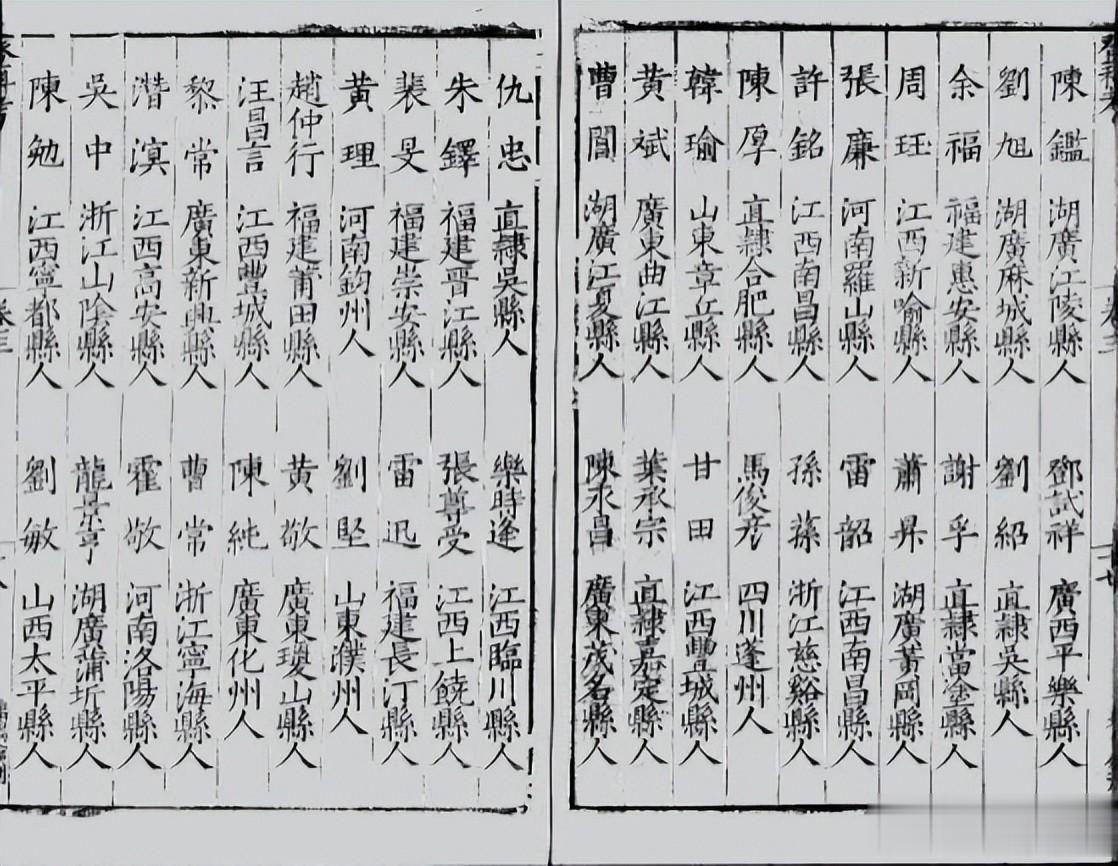 陳鑑 湖廣江陵縣人 鄧試祥 廣西平樂縣人
劉旭 湖廣麻城縣人 劉紹 直隷吳縣人
余福 福建惠安縣人 謝孚 直隷當塗縣人
周珏 江西新喻縣人 蕭昇 湖廣黃岡縣人
張廉 河南羅山縣人 雷韶 江西南昌縣人
許銘 江西南昌縣人 孫蓀 浙江慈谿縣人
陳厚 直隷合肥縣人 馬俊彥 四川蓬州人
韓瑜 山東章丘縣人 甘田 江西豐城縣人
黃斌 廣東曲江縣人 葉承宗 直隷嘉定縣人
曹閶 湖廣江夏縣人 陳永昌 廣東茂名縣人
仇忠 直隷吳縣人 樂時逢 江西臨川縣人
朱鐸 福建晉江縣人 張尊受 江西上饒縣人
裴旻 福建崇安縣人 雷迅 福建長汀縣人
黃理 河南鈞州人 劉堅 山東濮州人
趙仲行 福建莆田縣人 黃敬 廣東瓊山縣人
汪昌言 江西豐城縣人 陳純 廣東化州人
黎常 廣東新興縣人 曹常 浙江寧海縣人
潛溟 江西高安縣人 霍敬 河南洛陽縣人
吳中 浙江山陰縣人 龍景亨 湖廣蒲圻縣人
陳勉 江西寧都縣人 劉敏 山西太平縣人